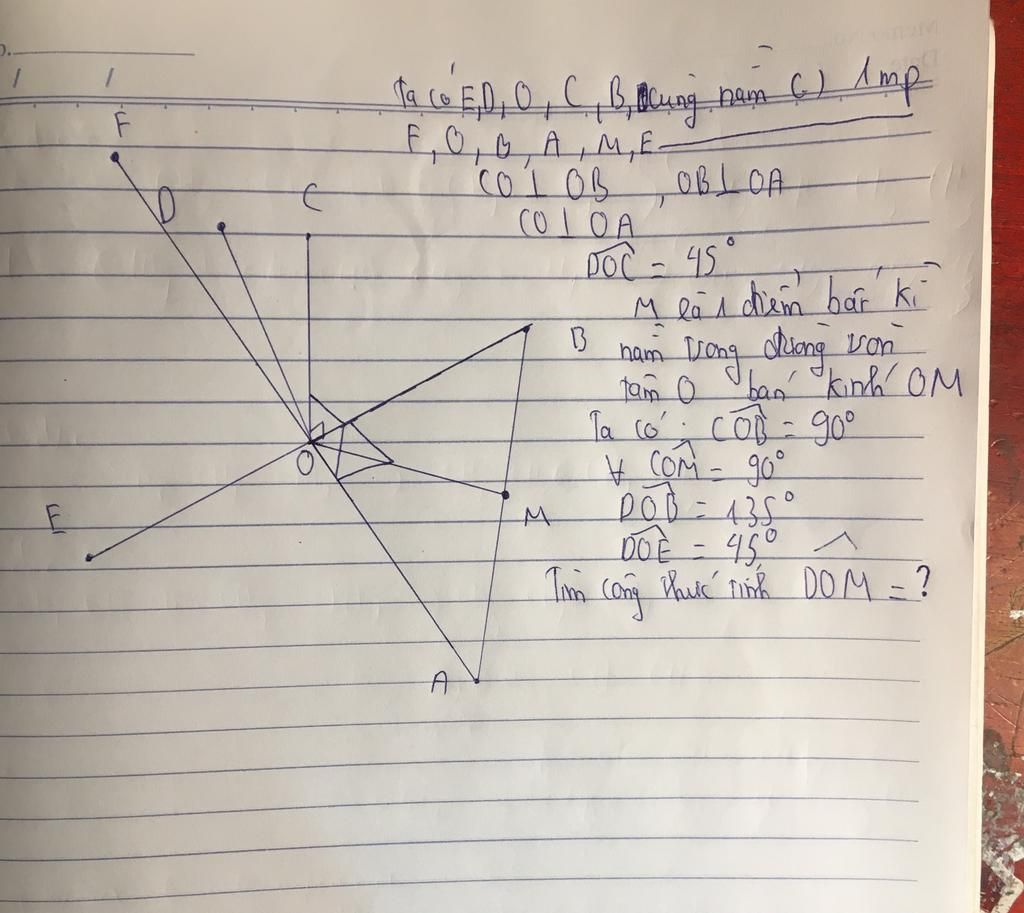 Ta có E,D, O, C, B, cùng nằm (·) 1 mp
F, O, B, A, M, E
CO ⊥ OB , OB ⊥ OA
CO ⊥ OA
DOC = 45°
M là 1 điểm bất kì
nằm trong đường tròn
tâm O bán kính OM
Ta có : COB = 90°
∀ COM = 90°
DOB = 135°
DOE = 45°
Tìm công thức tính DOM = ?
F
D
C
B
O
E
M
A